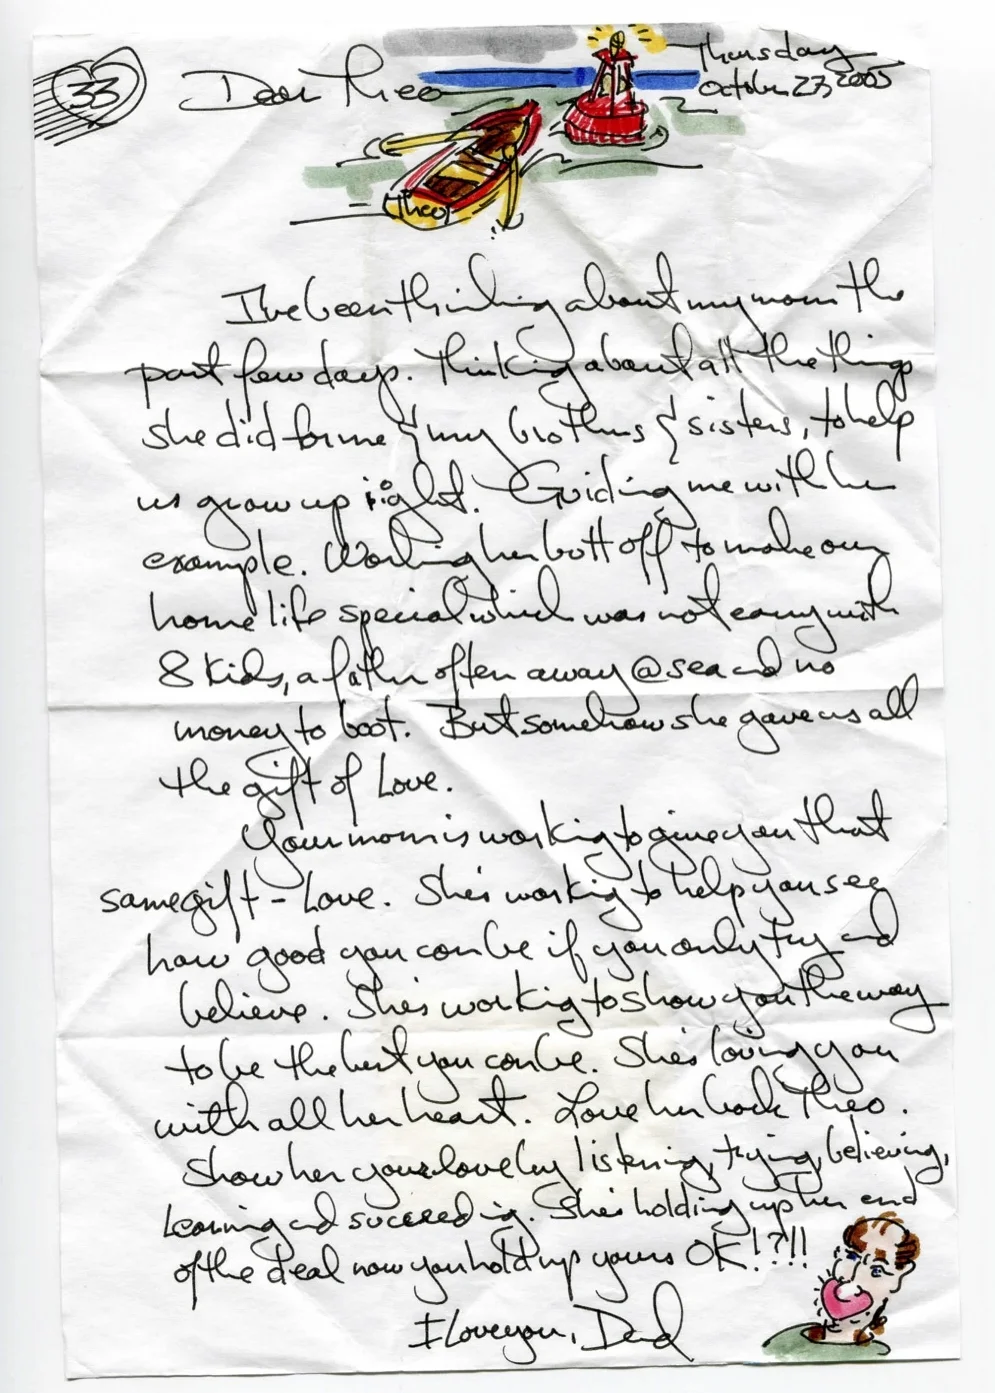 33
Dear Theo
Thursday
October 23, 2003
Theo
I've been thinking about my mom the
past few days. Thinking about all the things
she did for me & my brothers & sisters, to help
us grow up right. Guiding me with her
example. Working her butt off to make our
home life special which was not easy with
8 kids, a father often away @ sea and no
money to boot. But somehow she gave us all
the gift of Love.
Your mom is working to give you that
same gift - Love. She's working to help you see
how good you can be if you only try and
believe. She's working to show you the way
to be the best you can be. She's loving you
with all her heart. Love her back Theo.
Show her your love by listening, trying, believing,
learning and succeeding. She's holding up her end
of the deal now you hold up yours OK!?!!
I love you, Dad